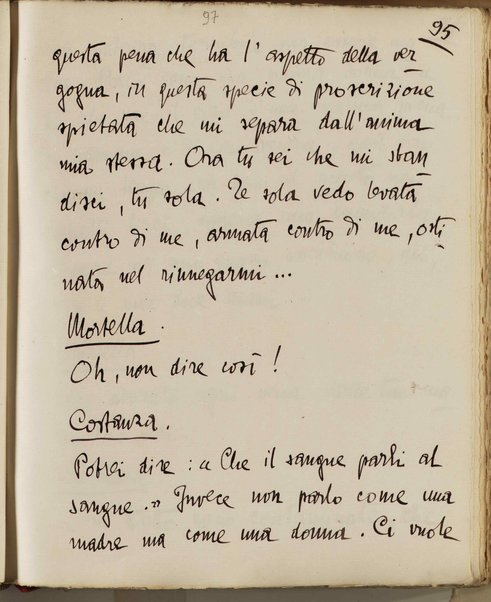 97
95
questa pena che ha l'aspetto della ver
gogna, in questa specie di proscrizione
spietata che mi separa dall'anima
mia stessa. Ora tu sei che mi sban
disci, tu sola. Te sola vedo levata
contro di me, armata contro di me, osti
nata nel rinnegarmi...
Mortella.
Oh, non dire così!
Costanza.
Potrei dire: « Che il sangue parli al
sangue.» Invece non parlo come una
madre ma come una donna. Ci vuole